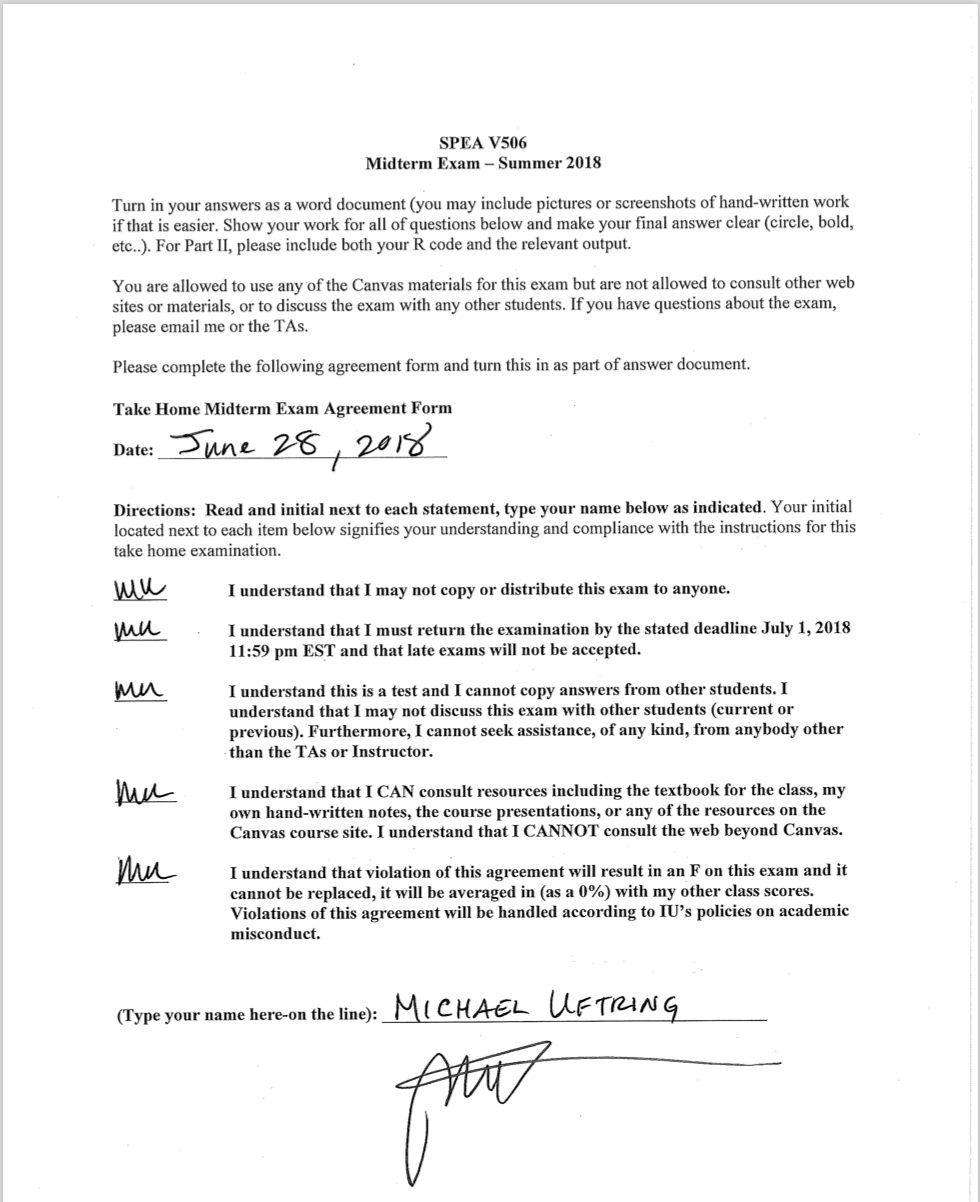 SPEA V506
Midterm Exam – Summer 2018
Turn in your answers as a word document (you may include pictures or screenshots of hand-written work
if that is easier. Show your work for all of questions below and make your final answer clear (circle, bold,
etc..). For Part II, please include both your R code and the relevant output.
You are allowed to use any of the Canvas materials for this exam but are not allowed to consult other web
sites or materials, or to discuss the exam with any other students. If you have questions about the exam,
please email me or the TAs.
Please complete the following agreement form and turn this in as part of answer document.
Take Home Midterm Exam Agreement Form
Date: June 28, 2018
Directions: Read and initial next to each statement, type your name below as indicated. Your initial
located next to each item below signifies your understanding and compliance with the instructions for this
take home examination.
MU I understand that I may not copy or distribute this exam to anyone.
MU I understand that I must return the examination by the stated deadline July 1, 2018
11:59 pm EST and that late exams will not be accepted.
MU I understand this is a test and I cannot copy answers from other students. I
understand that I may not discuss this exam with other students (current or
previous). Furthermore, I cannot seek assistance, of any kind, from anybody other
than the TAs or Instructor.
MU I understand that I CAN consult resources including the textbook for the class, my
own hand-written notes, the course presentations, or any of the resources on the
Canvas course site. I understand that I CANNOT consult the web beyond Canvas.
MU I understand that violation of this agreement will result in an F on this exam and it
cannot be replaced, it will be averaged in (as a 0%) with my other class scores.
Violations of this agreement will be handled according to IU's policies on academic
misconduct.
(Type your name here-on the line): MICHAEL UFTRING